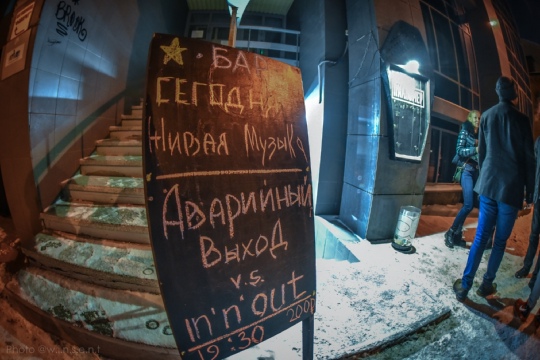 БАР
СЕГОДНЯ
Живая Музыка
Аварийный
Выход
v.s.
in'n'out
19:30 200Р